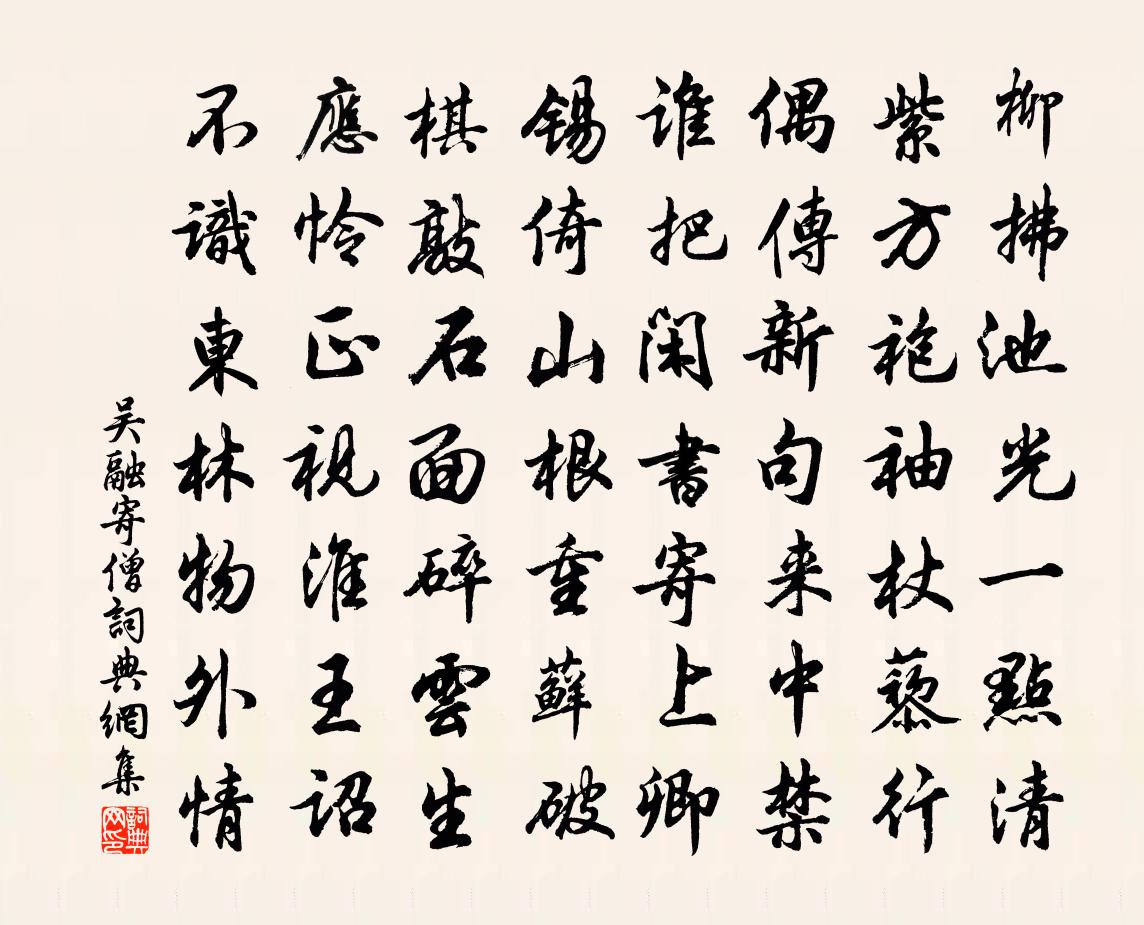 柳拂池光一點清
紫方袍袖杖藜行
偶傳新句来中禁
誰把閑書寄上卿
錫倚山根重蘚破
棋敲石面碎雲生
應憐正視淮王詔
不識東林物外情
吴融寄僧詞典網集
詞典網印